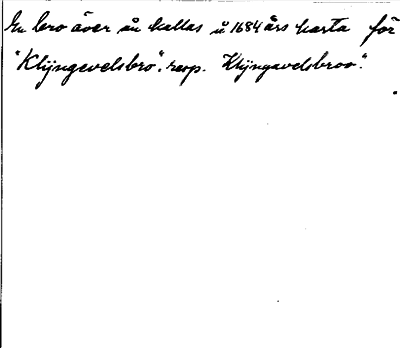 En bro över ån kallas å 1684 års karta för
"Klijngevelsbro", resp. "Klijngavelsbroo".